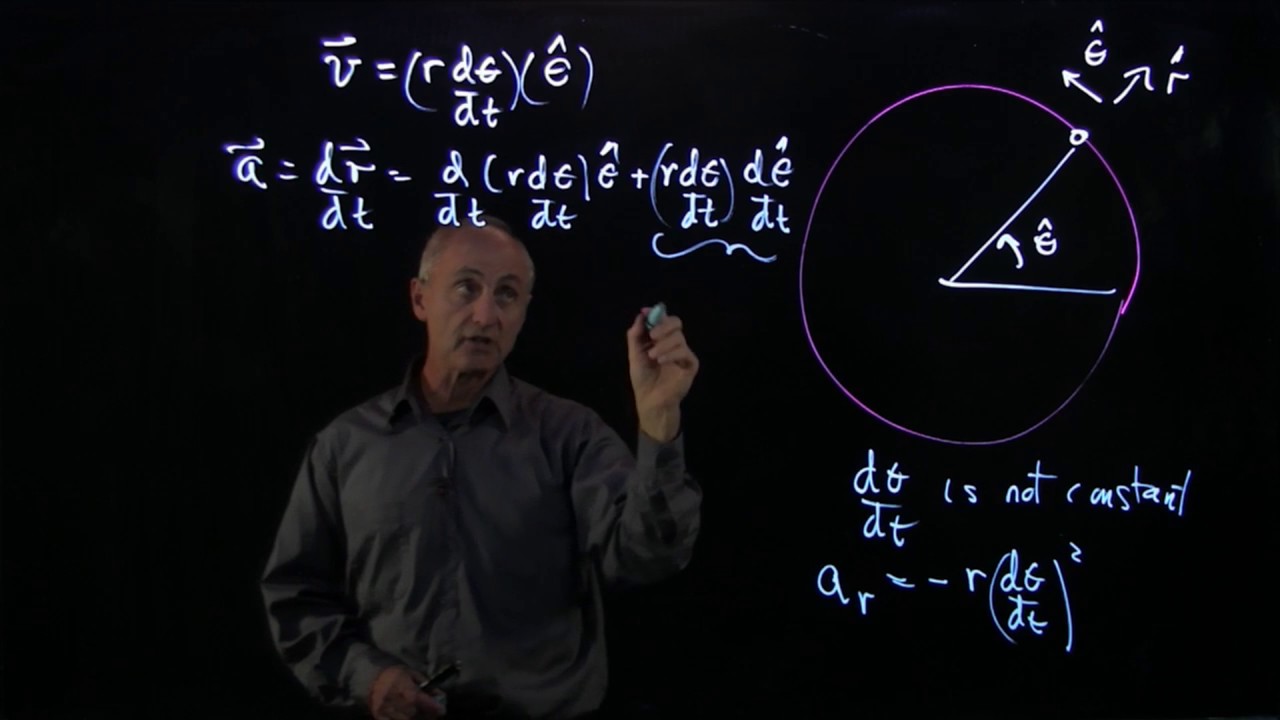 $\vec{v} = (r \frac{d\theta}{dt})(\hat{\theta})$
$\vec{a} = \frac{d\vec{r}}{dt} = \frac{d}{dt}(r\frac{d\theta}{dt})\hat{\theta} + (r\frac{d\theta}{dt})\frac{d\hat{\theta}}{dt}$
$\hat{\theta}$ $\hat{r}$
$\hat{\theta}$
$\frac{d\theta}{dt}$ is not constant
$a_r = -r(\frac{d\theta}{dt})^2$